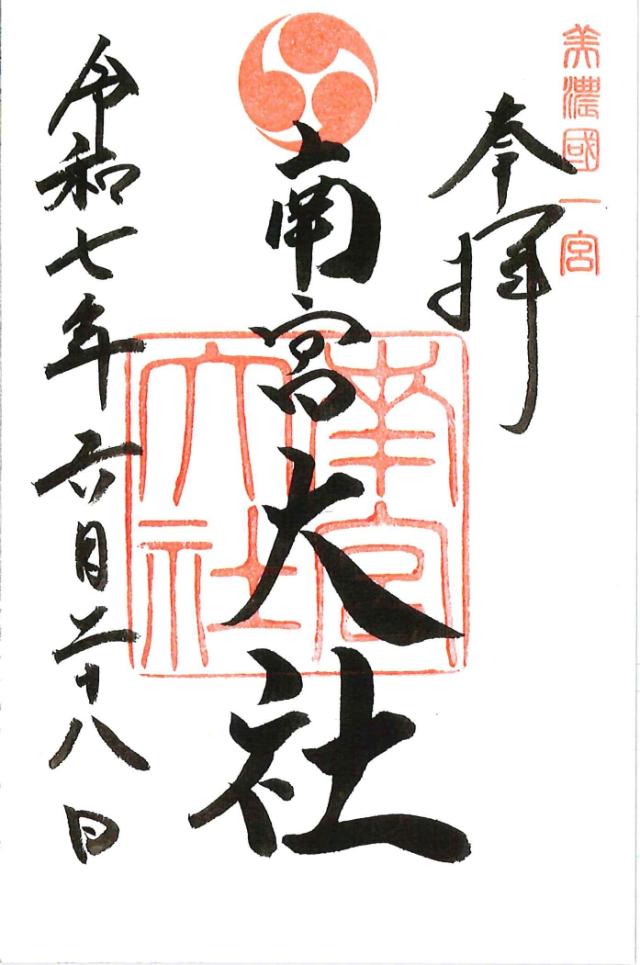 美濃國一宮
奉拝
南宮大社
南宮大社
令和七年六月二十八日